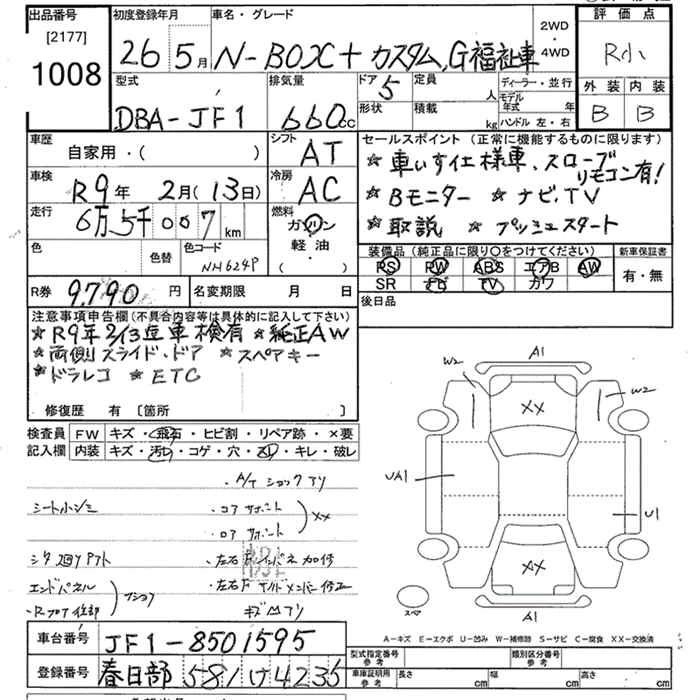 出品番号
[2177]
1008
初度登録年月
26 5月
車名・グレード
N-BOX+ カスタム,G福祉車
2WD
・
4WD
評価点
R小
外装 内装
B B
型式
DBA-JF1
排気量
660cc
ドア 5
定員 人
形状
積載 kg
ディーラー・並行
モデル年式 年
ハンドル 左・右
車歴
自家用・( )
シフト AT
車検
R9年 2月(13日)
冷房 AC
走行
6万5千007km
燃料
ガソリン
軽油
・( )
色
色替
色コード
NH624P
R券 9,790円
名変期限 月 日
セールスポイント(正常に機能するものに限ります)
☆車いす仕様車、スロープ リモコン有!
☆Bモニター ☆ナビ,TV
☆取説 ☆プッシュスタート
装備品(純正品に限り○をつけてください)
PS PW ABS エアB AW
SR ナビ TV カワ
新車保証書
有・無
後日品
注意事項申告欄(不具合内容等は具体的に記入して下さい)
☆R9年2/13迄車検有 ☆純正AW
☆両側スライド・ドア ☆スペアキー
☆ドラレコ ☆ETC
修復歴 有 [箇所 ]
検査員
記入欄
FW キズ・飛石・ヒビ割・リペア跡・×要
内装 キズ・汚れ・コゲ・穴・スレ・キレ・破レ
・A/T ショックアリ
シートシミ
・コアサポート
・ロアサポート
XX
エンドパネル
A1
W2
W2
XX
UA1
U1
XX
A1
スペア
A-キズ E-エクボ U-凹み W-補修跡 S-サビ C-腐食 XX-交換済
車台番号 JF1-8501595
登録番号 春日部 581け4235
型式指定番号
参考
類別区分番号
参考
車庫証明用
参考
長さ cm
幅 cm
高さ cm